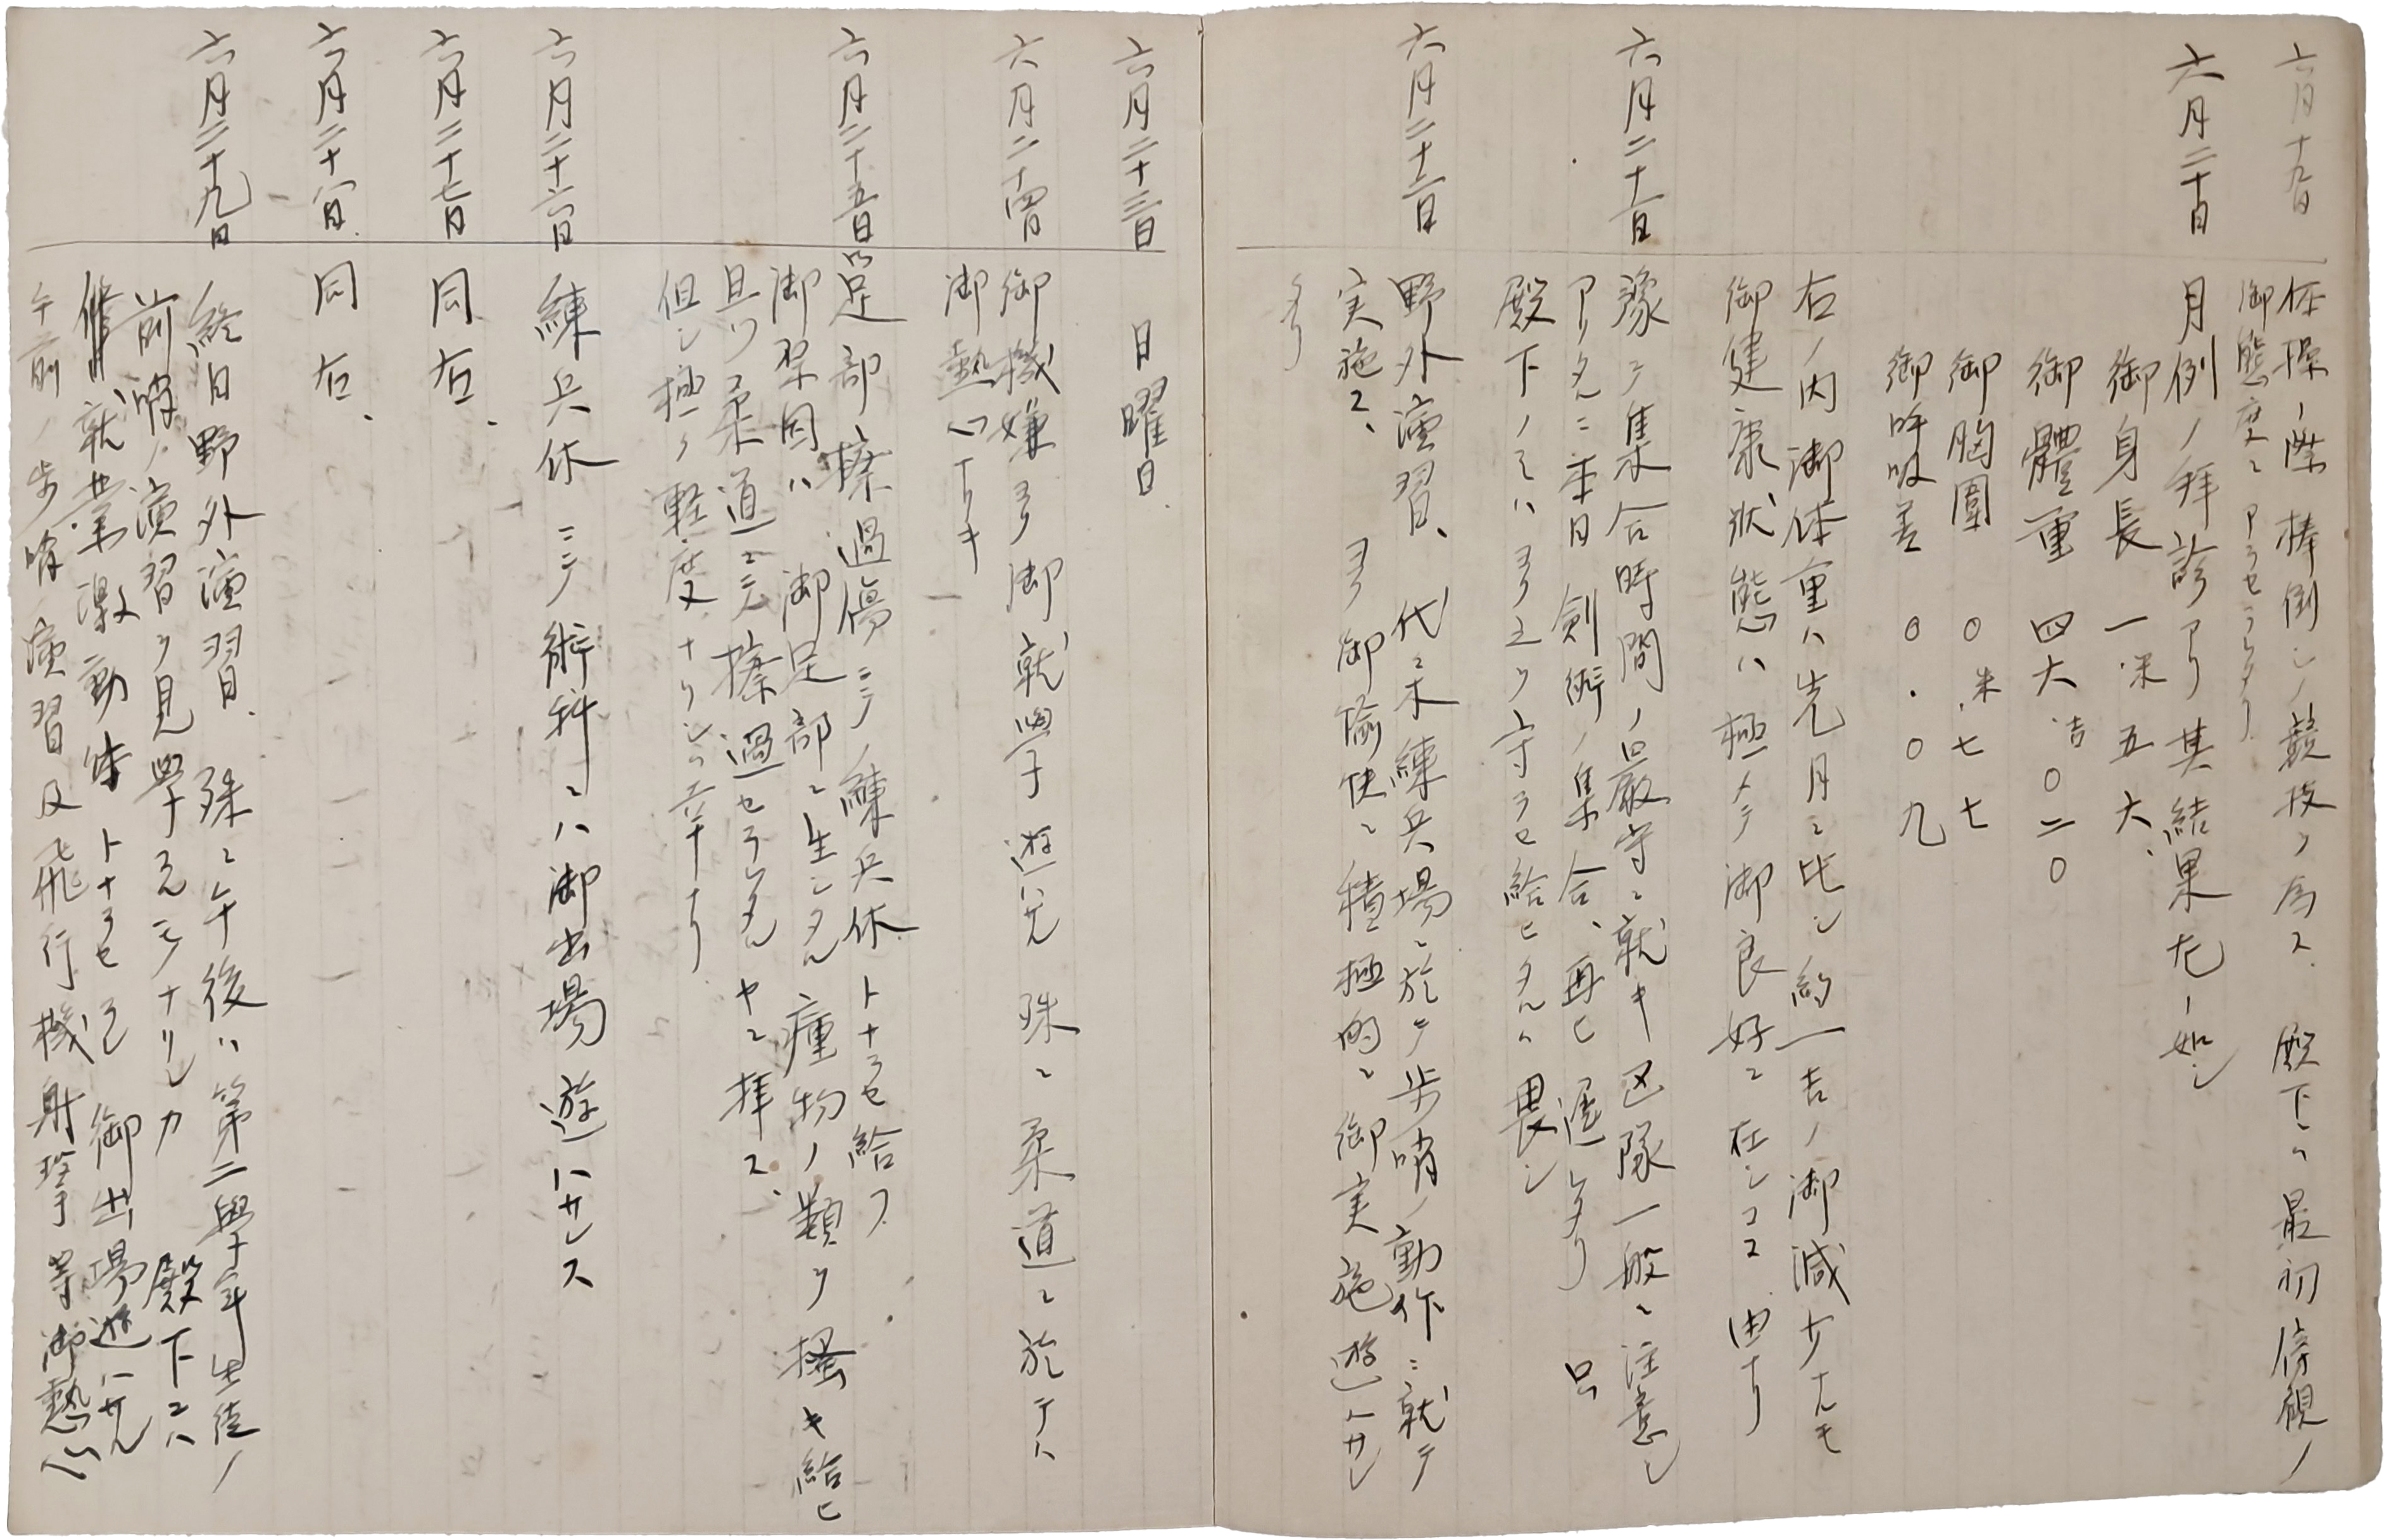 六月十九日
体操ノ際棒倒シノ競技ヲ為ス、殿下ニハ最初傍観ノ
御態度ニアラセラレタリ
六月二十日
月例ノ拜診アリ其結果左ノ如シ
御身長 一米五六、
御體重 四六吉〇二〇
御胸圍 〇米七七
御呼吸差 〇・〇九
右ノ内御体重ハ先月ニ比シ約一吉ノ御減少ナルモ
御健康狀態ハ極メテ御良好ニ在シマス由ナリ
六月二十一日
豫テ集合時間ノ嚴守ニ就キ区隊一般ニ注意シ
アリタルニ本日劍術ノ集合、再ヒ遅レタリ 只
殿下ノミハヨク之ヲ守ラセ給ヒタルハ畏シ
六月二十二日
野外演習、代々木練兵場ニ於テ歩哨ノ動作ニ就テ
実施ス、ヨク御愉快ニ積極的ニ御実施遊ハサレ
タリ
六月二十三日
日曜日、
六月二十四日
御機嫌ヨク御就學遊ハサル 殊ニ柔道ニ於テハ
御熱心ナリキ
六月二十五日
足部ノ擦過傷ニテ練兵休トナラセ給フ
御原因ハ御足部ニ生シタル腫物ノ類ヲ搔キ給ヒ
且ツ柔道ニテ擦過セラレタルヤニ拝ス、
但シ極ク軽度ナリシハ幸ナリ
六月二十六日
練兵休ニテ術科ニハ御出場遊ハサレス
六月二十七日
同右、
六月二十八日
同右、
六月二十九日
終日野外演習、殊ニ午後ハ第二學年生徒ノ
前哨ノ演習ヲ見學スルモノナリシカ 殿下ニハ
就業激動休トナラセラレ 御出場遊ハサル
午前ノ歩哨演習及飛行機射撃等御熱心